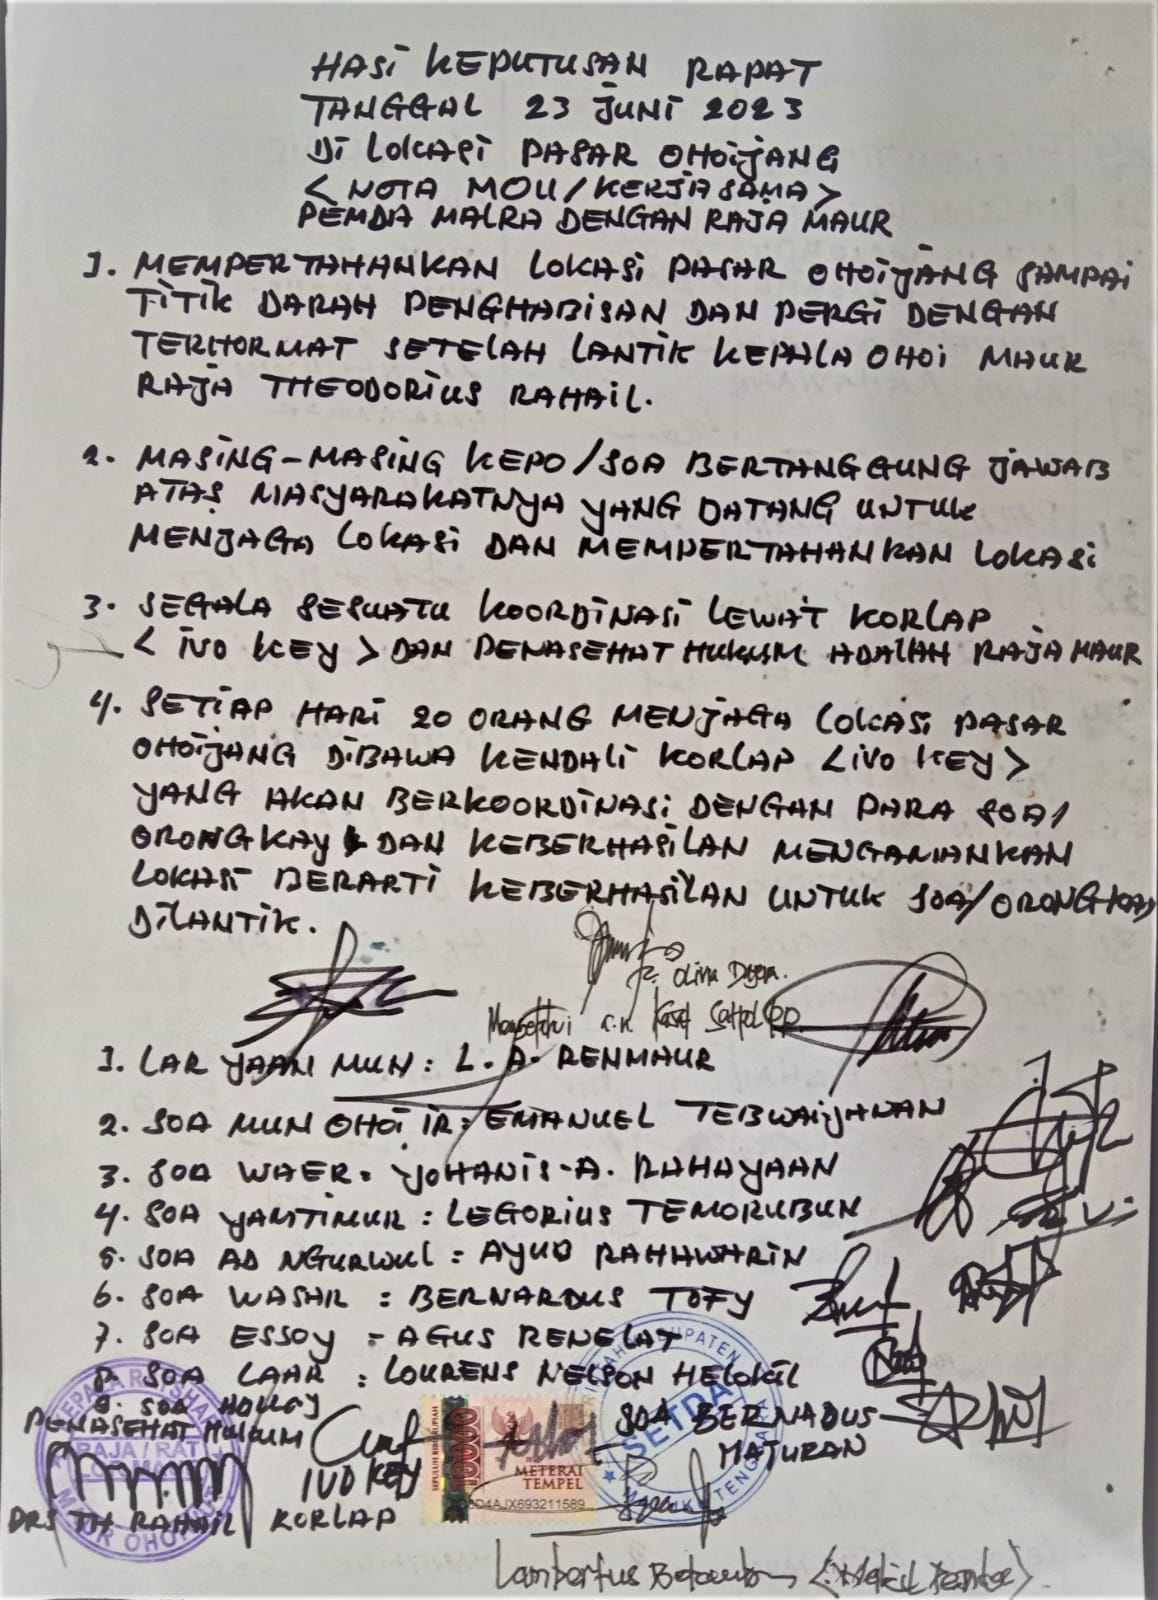 HASI KEPUTUSAN RAPAT
TANGGAL 23 JUNI 2023
DI LOKASI PASAR OHOIJANG
< NOTA MOU/KERJASAMA >
PEMDA MALRA DENGAN RAJA MAUR
1. MEMPERTAHANKAN LOKASI PASAR OHOIJANG SAMPAI
TITIK DARAH PENGHABISAN DAN PERGI DENGAN
TERHORMAT SETELAH LANTIK KEPALA OHOI MAUR
RAJA THEODORIUS RAHAIL.
2. MASING-MASING KEPO/SOA BERTANGGUNG JAWAB
ATAS MASYARAKATNYA YANG DATANG UNTUK
MENJAGA LOKASI DAN MEMPERTAHANKAN LOKASI
3. SEGALA SESUATU KOORDINASI LEWAT KORLAP
< IVO KEY > DAN PENASEHAT HUKUM ADALAH RAJA MAUR
4. SETIAP HARI 20 ORANG MENJAGA LOKASI PASAR
OHOIJANG DIBAWA KENDALI KORLAP <IVO KEY>
YANG AKAN BERKOORDINASI DENGAN PARA SOA/
ORONGKAY DAN KEBERHASILAN MENGAMANKAN
LOKASI BERARTI KEBERHASILAN UNTUK SOA/ORONGKAY
DILANTIK.
a.n Kasat Satpol PP.
1. LAR YAAN MUN : L. A. RENMAUR
2. SOA MUN OHOI IR : EMANUEL TEBWAIJANAN
3. SOA WAER : YOHANIS-A. RAHAYAAN
4. SOA YAMTIMUR : LEGORIUS TEMORUBUN
5. SOA AD NGURWUL : AYUB RAHAWARIN
6. SOA WASAR : BERNARDUS TOFY
7. SOA ESSOY : AGUS RENELAT
8. SOA LAAR : LOURENS NELSON HELOKIL
9. SOA HOKAY
SOA BERNADUS
MATURAN
PENASEHAT HUKUM
DRS TH RAHAIL
IVO KEY
KORLAP
SEPULUH RIBU RUPIAH
10000
METERAI
TEMPEL
D4AJX693211589
SETDA
RAJA / RAT
Lambertus